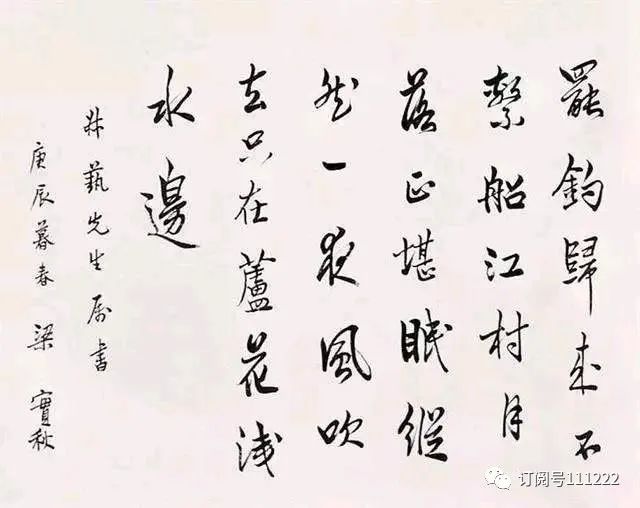 罷釣歸來不
繫船江村月
落正堪眠縱
然一夜風吹
去只在蘆花淺
水邊
藝先生属書
庚辰暮春 梁實秋
订阅号111222